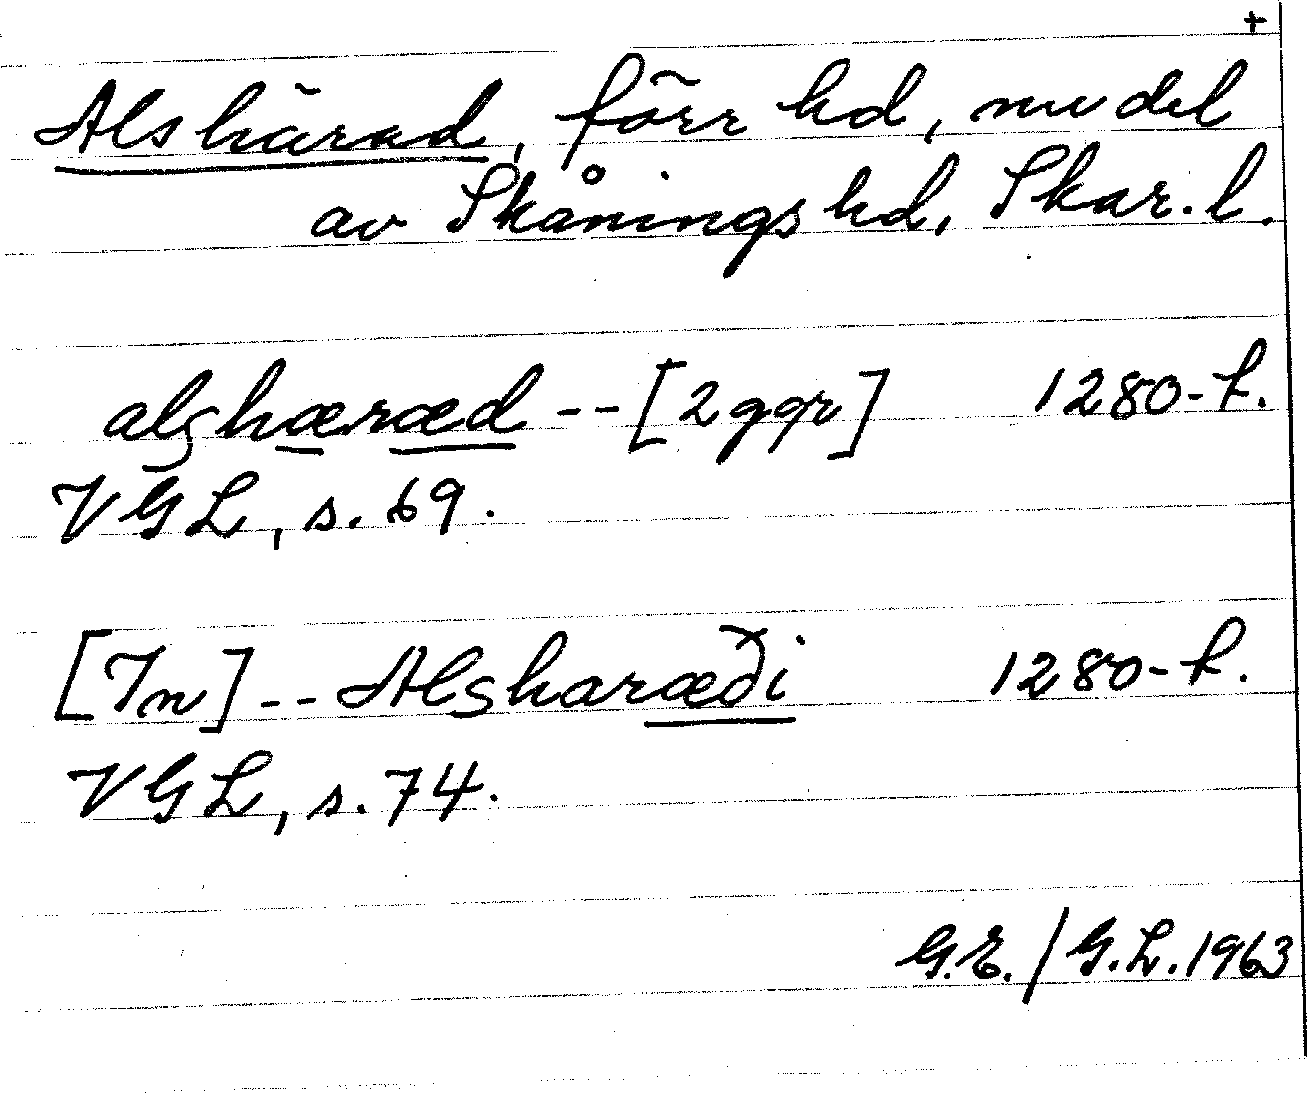 +
Alshärad, förr hd, nu del
av Skånings hd, Skar. l.
alshæræd -- [2 ggr] 1280-t.
VGL, s. 69.
[In] -- Alsharæði 1280-t.
VGL, s. 74.
G.E. / G.L. 1963